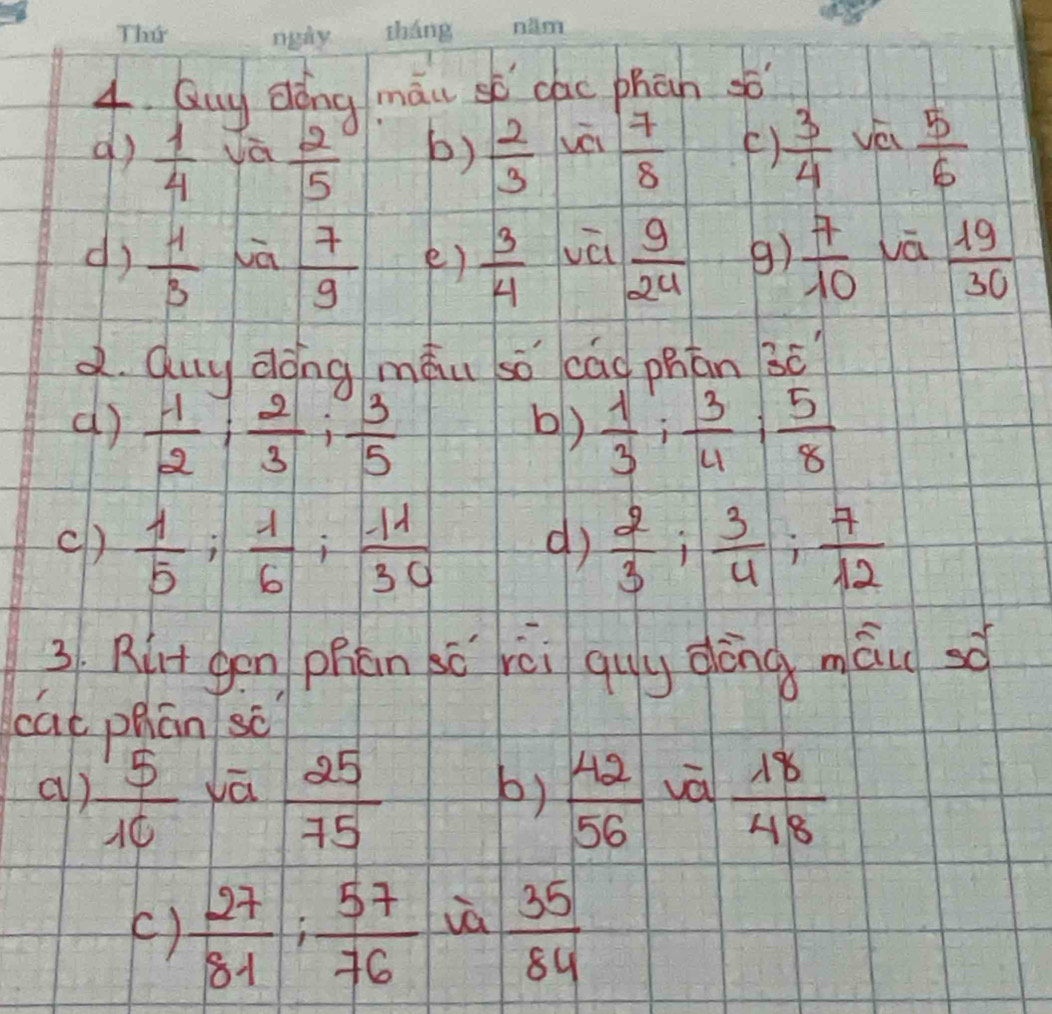 Thứ ngày tháng năm
1. Quy đồng mẫu số các phân số
a) 1/4 và 2/5 b) 2/3 và 7/8 c) 3/4 và 5/6
d) 1/3 và 7/9 e) 3/4 và 9/24 g) 7/10 và 19/30
2. Quy đồng mẫu số các phân số
a) 1/2 ; 2/3 ; 3/5 b) 1/3 ; 3/4 ; 5/8
c) 1/5 ; 1/6 ; 11/30 d) 2/3 ; 3/4 ; 7/12
3. Rút gọn phân số rồi quy đồng mẫu số
các phân số
a) 5/10 và 25/75 b) 42/56 và 18/48
c) 27/81 ; 57/76 và 35/84